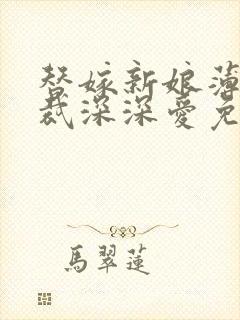 替嫁新娘薄
裁深深爱免
馬翠蓮